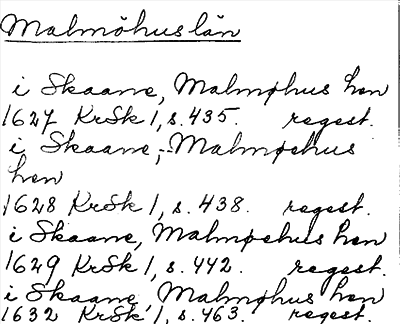 Malmöhuslän
i Skaane, Malmøhus hen
1627 KrSk 1, s. 435. regest.
i Skaane, Malmøehus
hen
1628 KrSk 1, s. 438. regest.
i Skaane, Malmøehus hen
1629 KrSk 1, s. 442. regest.
i Skaane, Malmøhus hen
1632 KrSk 1, s. 463. regest.